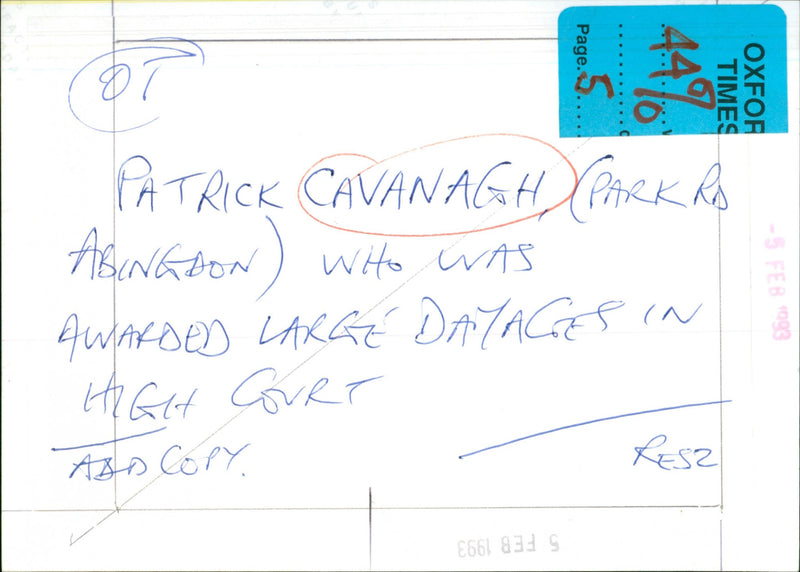 OT
OXFOR
TIMES
449
Page. 5
PATRICK CAVANAGH, (PARK RD
ABINGDON) WHO WAS
AWARDED LARGE DAMAGES IN
HIGH COURT
ADD COPY.
-5 FEB 1993
5 FEB 1993